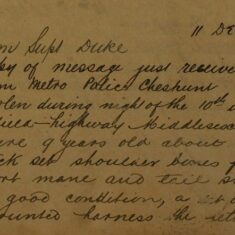 11 DE
m Supt Duke
y of message just receive
m Metro Police Cheshunt
olen during night of the 10th
field highway Middlesex
are 9 years old about
ck set shoulder bones
ort mane and tail
good condition, a set o
ounted harness the